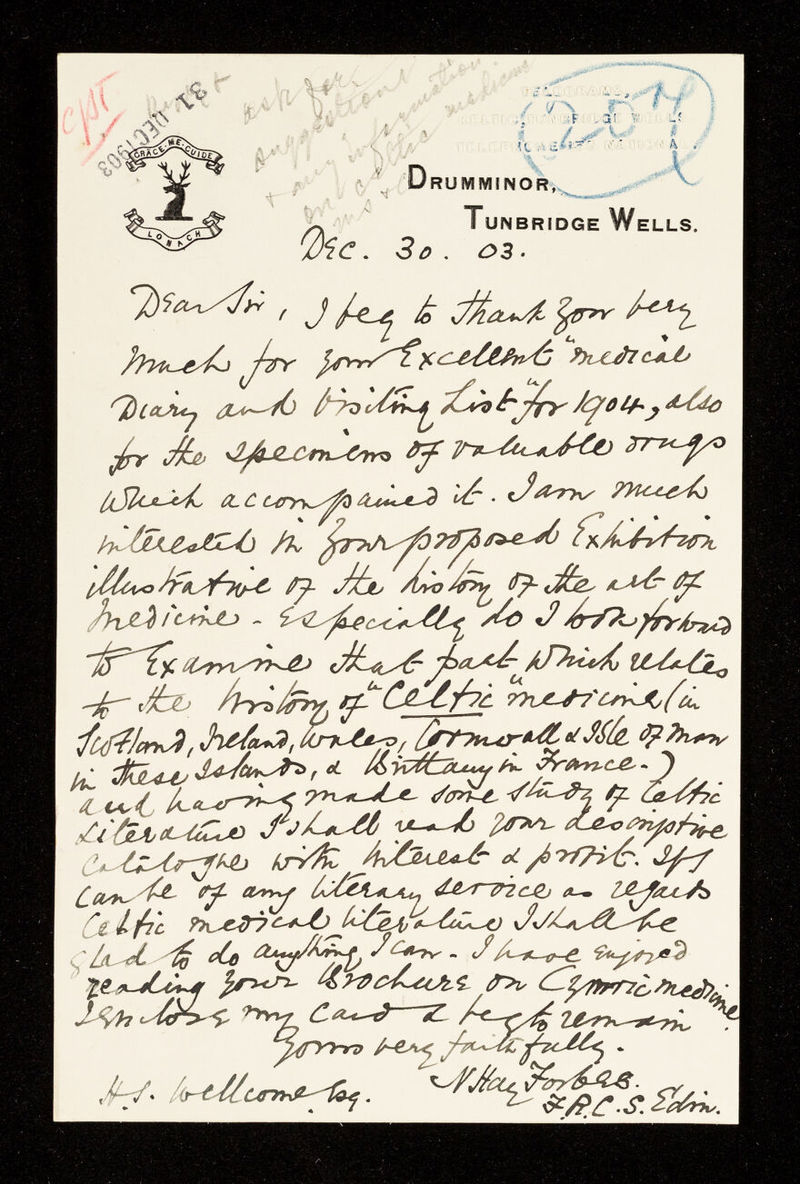 CPT
31 DEC 1903
ask for
suggestions
+ any information
on Celtic medicine
ms +c
TELEGRAMS,
TUNBRIDGE WELLS
207
GRACE-ME-GUIDE
LONACH
DRUMMINOR,
TUNBRIDGE WELLS.
Dec. 30. 03.
Dear Sir, I beg to thank you very
much for your Excellent "medical
Diary and Visiting List" for 1904, also
for the specimens of valuable drugs
which accompained it. I am much
interested in your proposed Exhibition
illustrative of the history of the art of
Medicine - Especially do I look forward
to Examine that part which relates
to the history of "Celtic" medicine (in
Scotland, Ireland, Wales, Cornwall & Isle of Man
in these Islands, & Brittany in France.)
and having made some study of Celtic
Literature I shall read your descriptive
Catalogue with interest & profit. If I
can be of any literary service as regards
Celtic medical literature I shall be
glad to do anything I can. I have enjoyed
reading your Brochure on Cymric medicine.
I enclose my card & beg to remain
Yours very faithfully.
N Hay Forbes.
F.R.C.S. Edin.
H.S. Wellcome Esq.